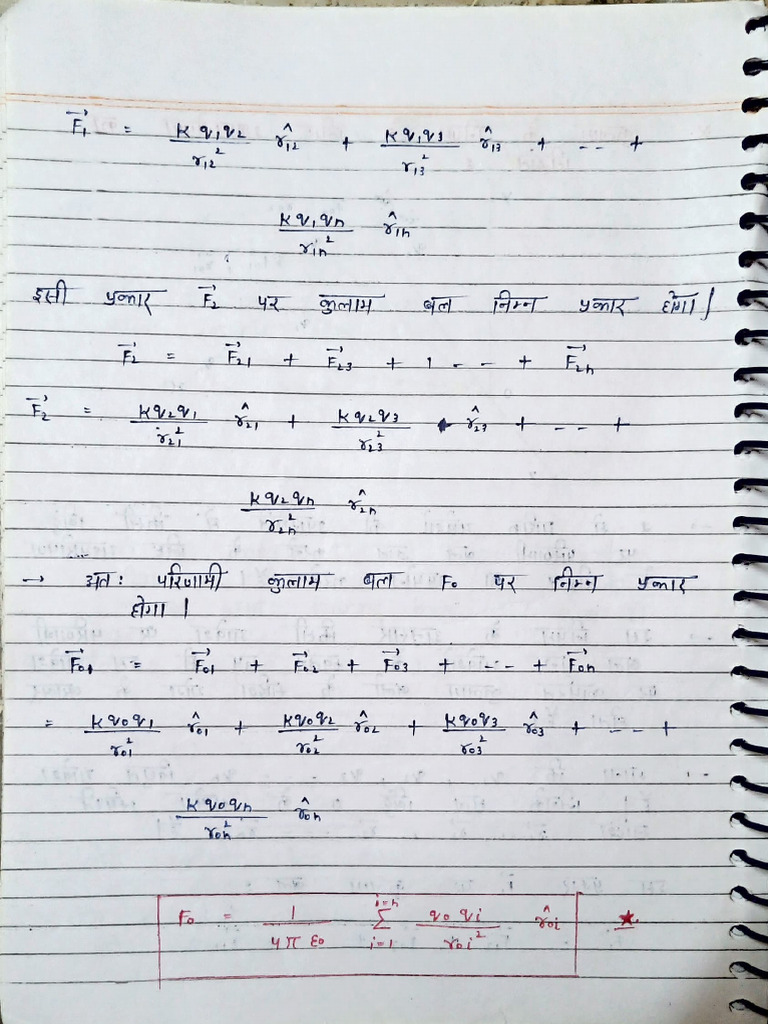 F₁⃗ = Kq₁q₂/r₁₂² r̂₁₂ + Kq₁q₃/r₁₃² r̂₁₃ + -- +
Kq₁qₙ/r₁ₙ² r̂₁ₙ
इसी प्रकार F₂⃗ पर कुलाम बल निम्न प्रकार होगा।
F₂⃗ = F₂₁⃗ + F₂₃⃗ + 1 - - + F₂ₙ⃗
F₂⃗ = Kq₂q₁/r₂₁² r̂₂₁ + Kq₂q₃/r₂₃² r̂₂₃ + -- +
Kq₂qₙ/r₂ₙ² r̂₂ₙ
→ अतः परिणामी कुलाम बल F₀ पर निम्न प्रकार
होगा।
F₀₁⃗ = F₀₁⃗ + F₀₂⃗ + F₀₃⃗ + -- + F₀ₙ⃗
= Kq₀q₁/r₀₁² r̂₀₁ + Kq₀q₂/r₀₂² r̂₀₂ + Kq₀q₃/r₀₃² r̂₀₃ + --- +
Kq₀qₙ/r₀ₙ² r̂₀ₙ
F₀ = 1/4π ε₀ Σ i=n i=1 q₀qᵢ/r₀ᵢ² r̂₀ᵢ ★